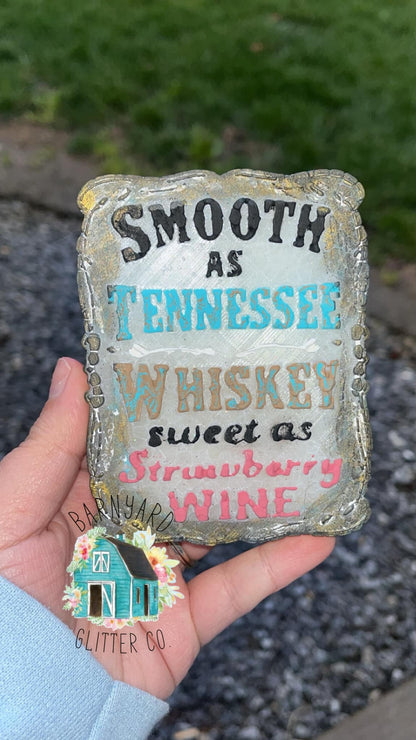 SMOOTH
AS
TENNESSEE
WHISKEY
sweet as
Strawberry
WINE
BARNYARD
GLITTER CO.